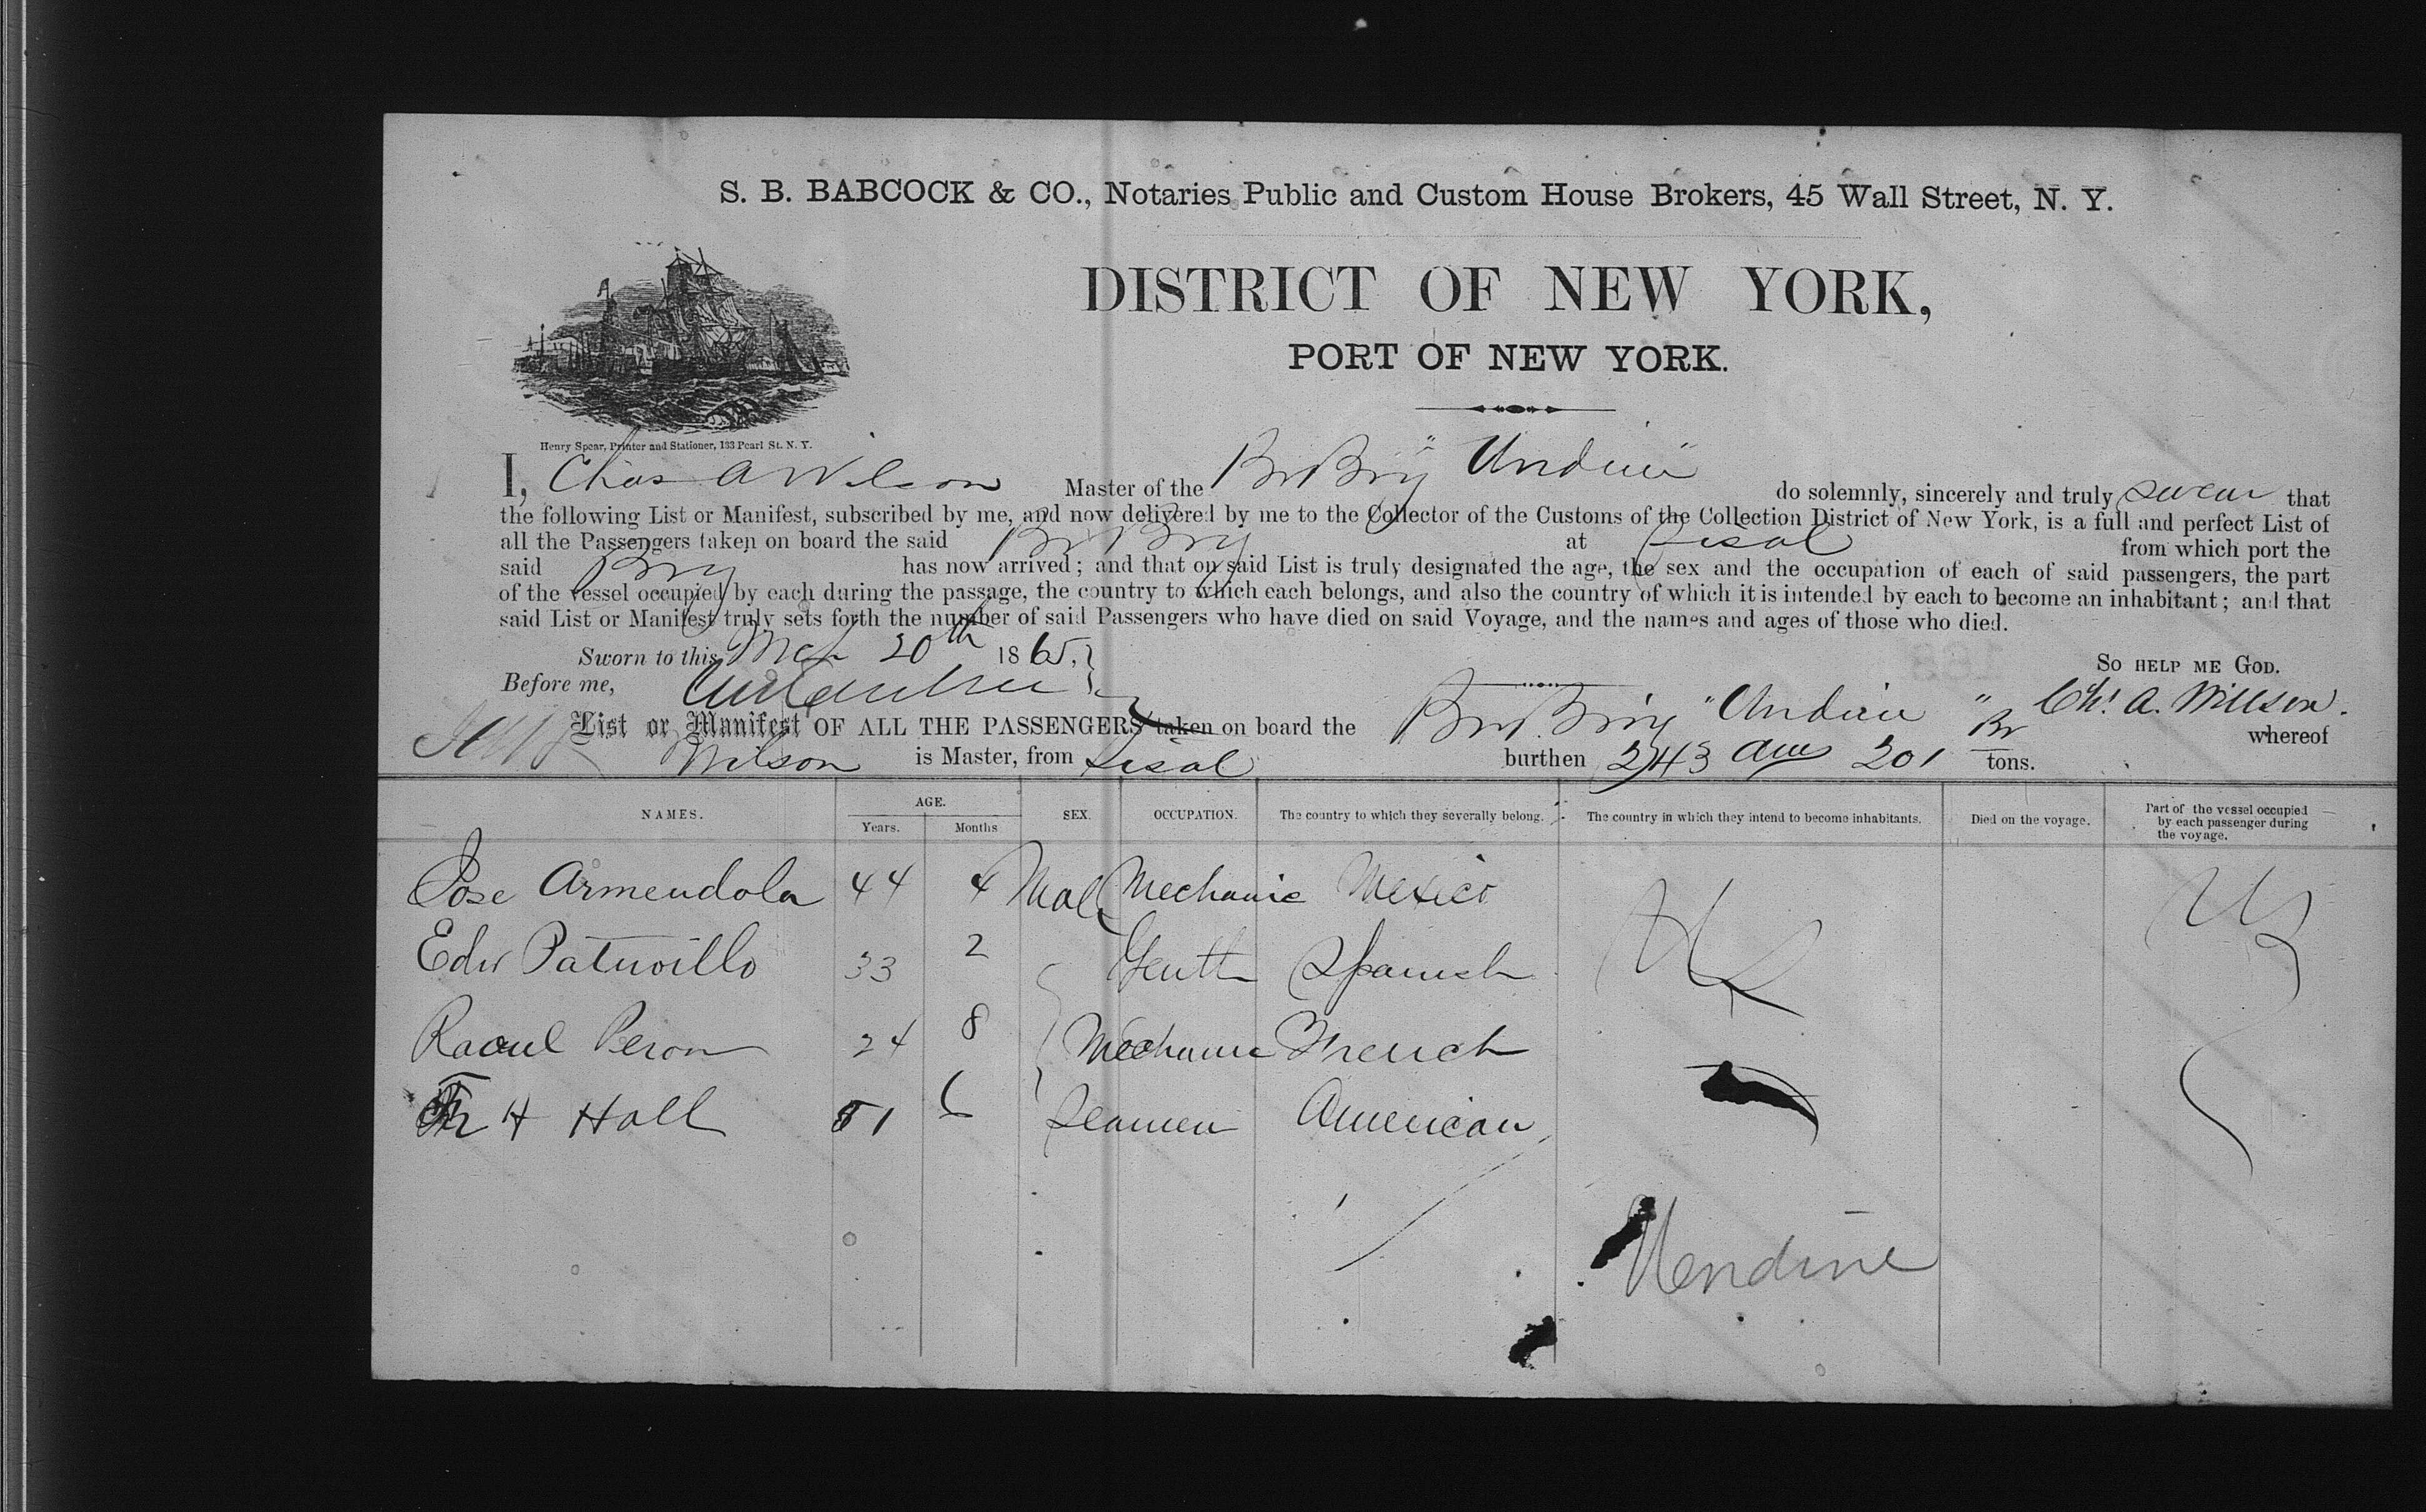 S. B. BABCOCK & CO., Notaries Public and Custom House Brokers, 45 Wall Street, N. Y.
DISTRICT OF NEW YORK,
PORT OF NEW YORK.
Henry Spear, Printer and Stationer, 133 Pearl St. N. Y.
I, Chas A Wilson Master of the Br Brig "Undine" do solemnly, sincerely and truly swear that
the following List or Manifest, subscribed by me, and now delivered by me to the Collector of the Customs of the Collection District of New York, is a full and perfect List of
all the Passengers taken on board the said Br Brig at Sisal from which port the
said Brig has now arrived; and that on said List is truly designated the age, the sex and the occupation of each of said passengers, the part
of the vessel occupied by each during the passage, the country to which each belongs, and also the country of which it is intended by each to become an inhabitant; and that
said List or Manifest truly sets forth the number of said Passengers who have died on said Voyage, and the names and ages of those who died.
Sworn to this 20th 1865, So help me God.
Before me, Chs. A. Willson.
List or Manifest OF ALL THE PASSENGERS taken on board the Br Brig "Undine" whereof
Wilson is Master, from Sisal burthen 243 201 tons.
NAMES. AGE. Years. Months SEX. OCCUPATION. The country to which they severally belong. The country in which they intend to become inhabitants. Died on the voyage. Part of the vessel occupied by each passenger during the voyage.
Jose Armendola 44 4 Male Mechanic Mexico
Edw 33 2 Gentl Spanish
Raoul Peron 24 8 Mechanic French
H Hall 51 6 Seamen American
Undine